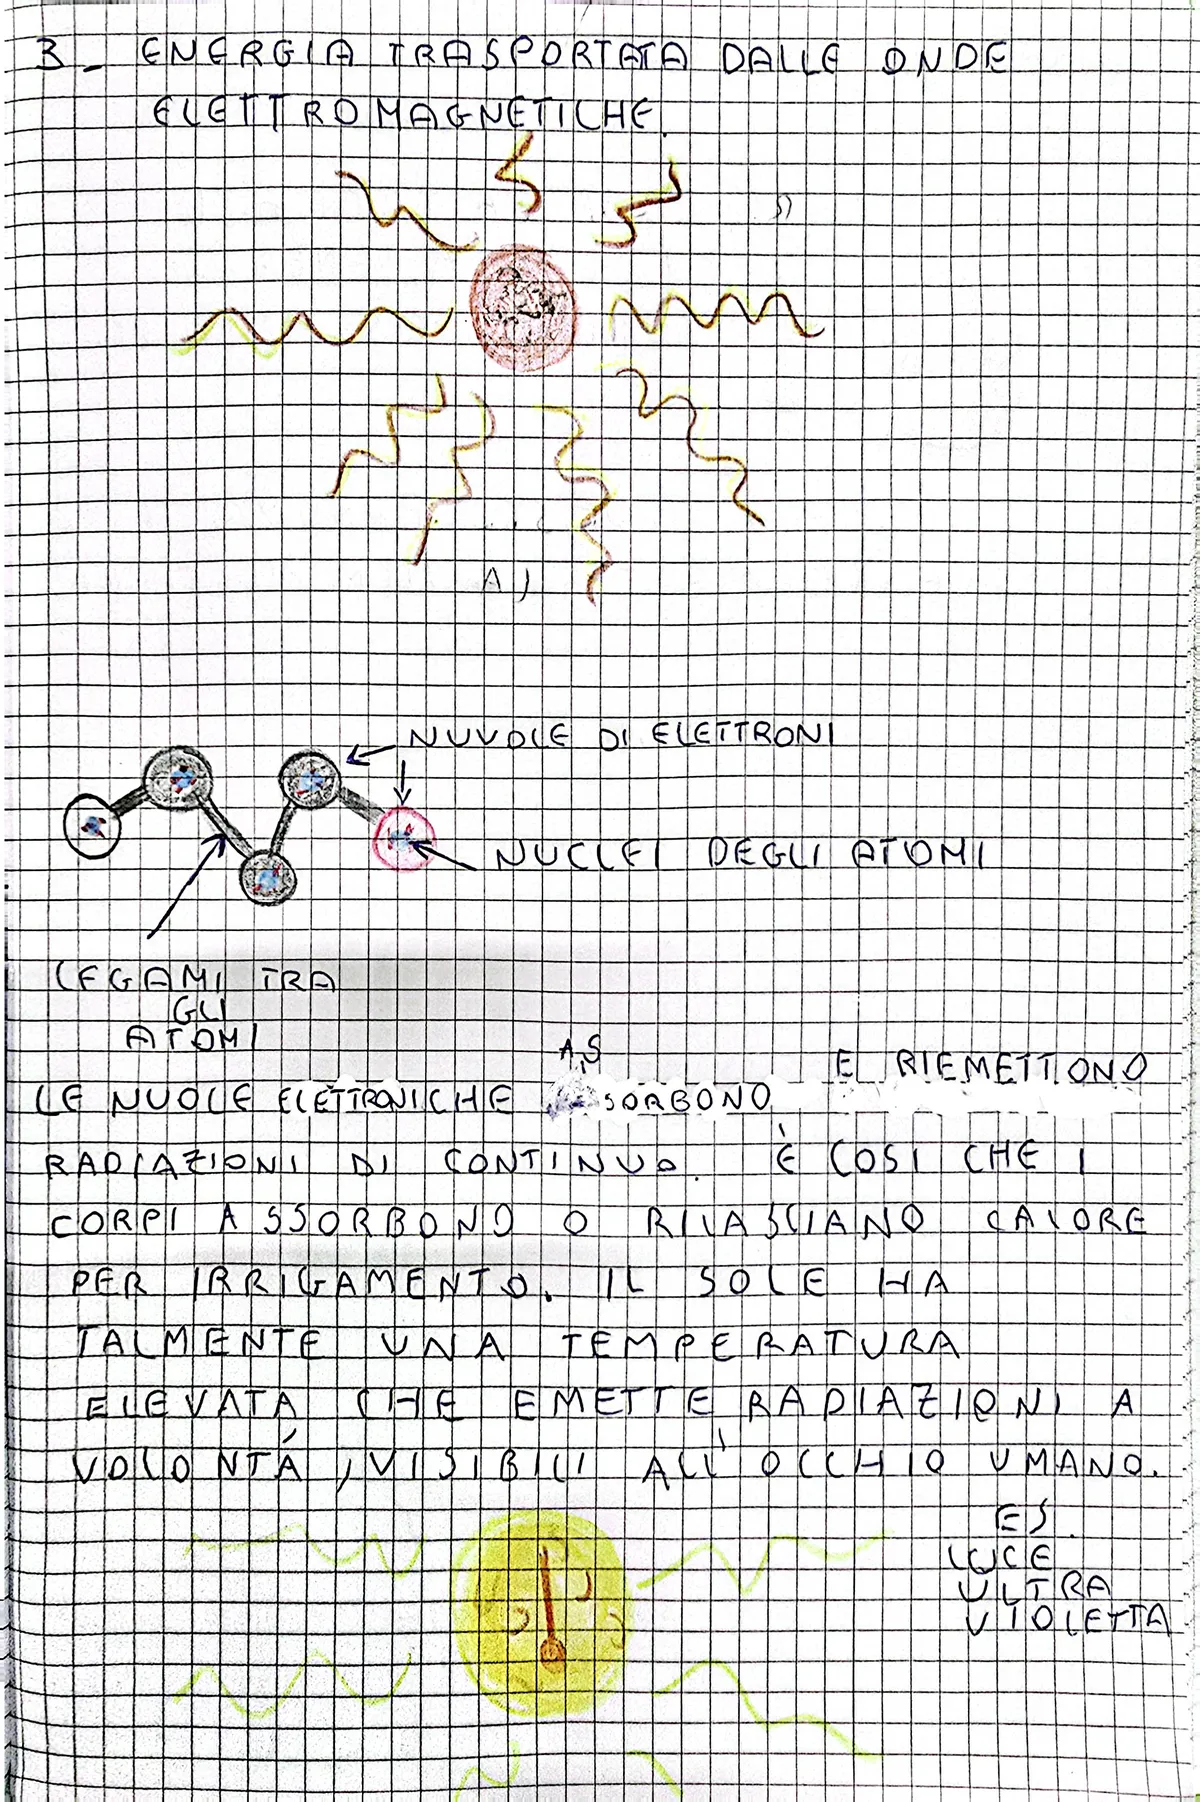 3_ ENERGIA TRASPORTATA DALLE ONDE
ELETTROMAGNETICHE.
A)
NUVOLE DI ELETTRONI
NUCLEI DEGLI ATOMI
LEGAMI TRA
GLI
ATOMI
AS
E RIEMETTONO
LE NUOLE ELETTRONICHE SSORBONO
RADIAZIONI DI CONTINUO. È COSI CHE I
CORPI ASSORBONO O RILASCIANO CALORE
PER IRRIGAMENTO. IL SOLE HA
TALMENTE UNA TEMPERATURA
ELEVATA CHE EMETTE RADIAZIONI A
VOLONTÁ, VISIBILI ALL'OCCHIO UMANO.
ES.
LUCE
ULTRA
VIOLETTA